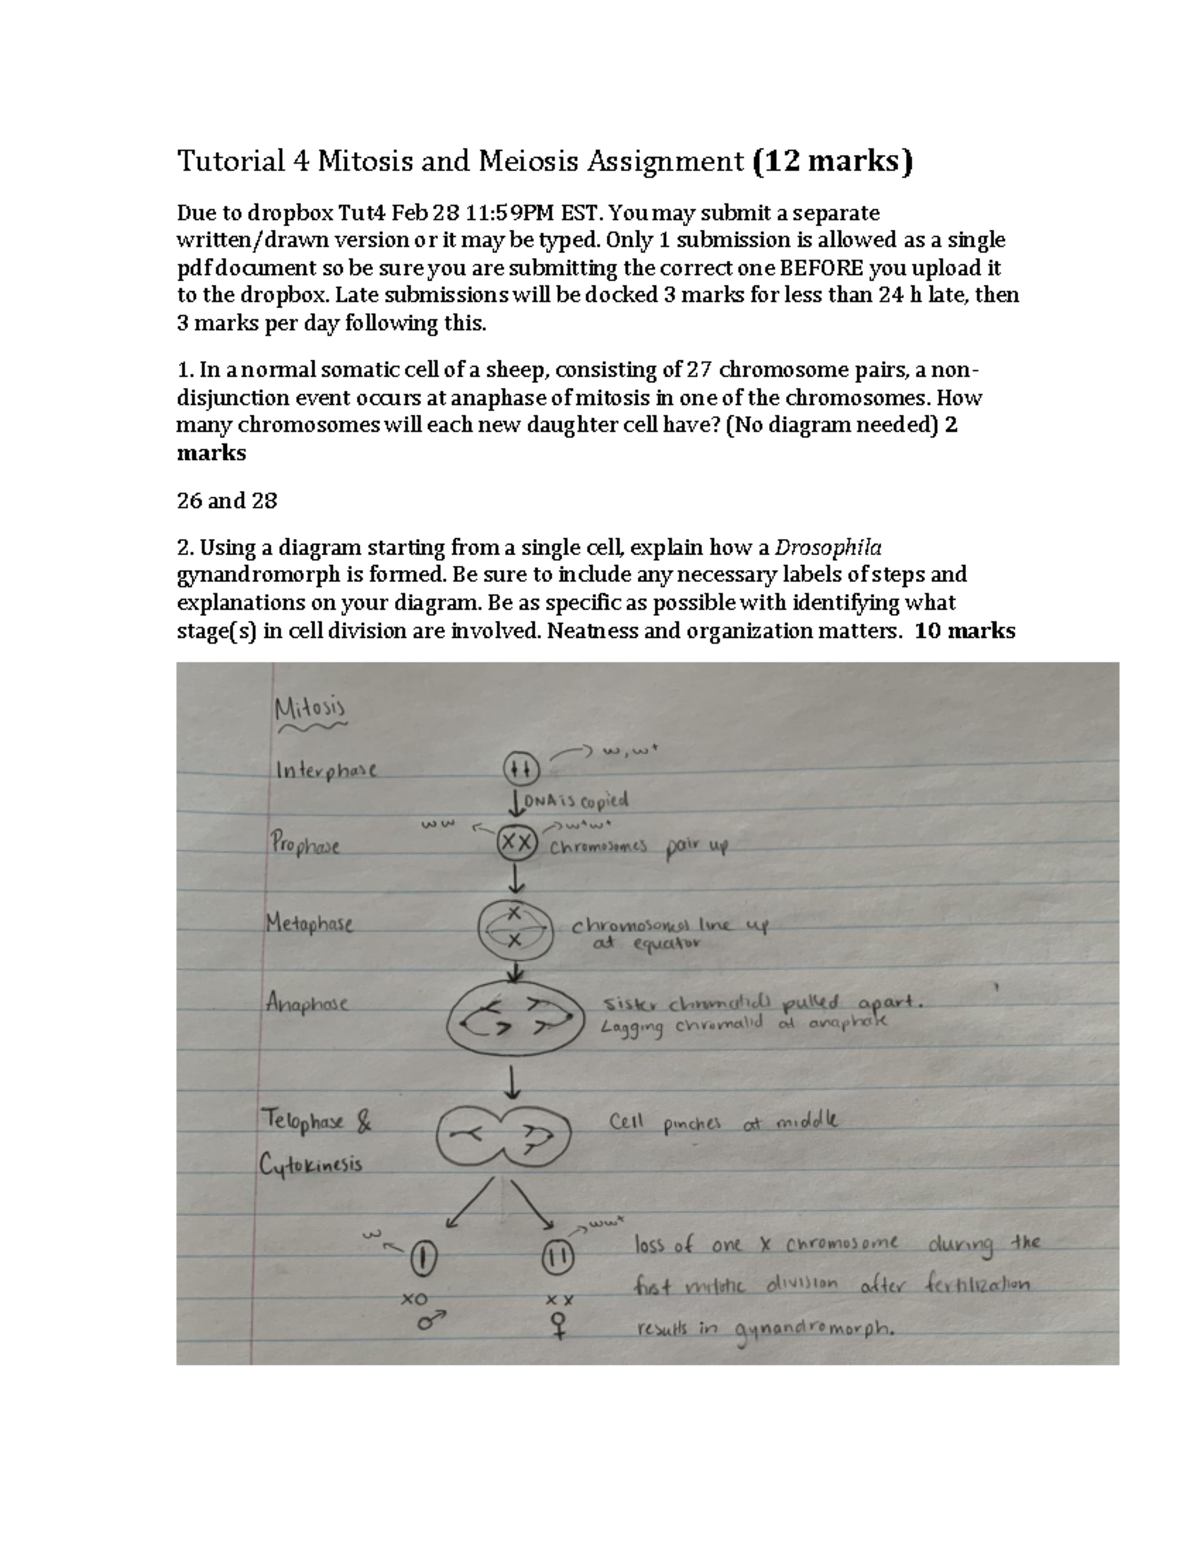 Tutorial 4 Mitosis and Meiosis Assignment (12 marks)
Due to dropbox Tut4 Feb 28 11:59PM EST. You may submit a separate
written/drawn version or it may be typed. Only 1 submission is allowed as a single
pdf document so be sure you are submitting the correct one BEFORE you upload it
to the dropbox. Late submissions will be docked 3 marks for less than 24 h late, then
3 marks per day following this.
1. In a normal somatic cell of a sheep, consisting of 27 chromosome pairs, a non-
disjunction event occurs at anaphase of mitosis in one of the chromosomes. How
many chromosomes will each new daughter cell have? (No diagram needed) 2
marks
26 and 28
2. Using a diagram starting from a single cell, explain how a Drosophila
gynandromorph is formed. Be sure to include any necessary labels of steps and
explanations on your diagram. Be as specific as possible with identifying what
stage(s) in cell division are involved. Neatness and organization matters. 10 marks
Mitosis
w, w+
Interphase
DNA is copied
ww w+w+
Prophase XX chromosomes pair up
Metaphase X chromosomes line up
X at equator
Anaphase sister chromatids pulled apart.
Lagging chromatid at anaphase
Telophase & Cell pinches at middle
Cytokinesis
w ww+
loss of one X chromosome during the
XO XX first mitotic division after fertilization
♂ ♀ results in gynandromorph.